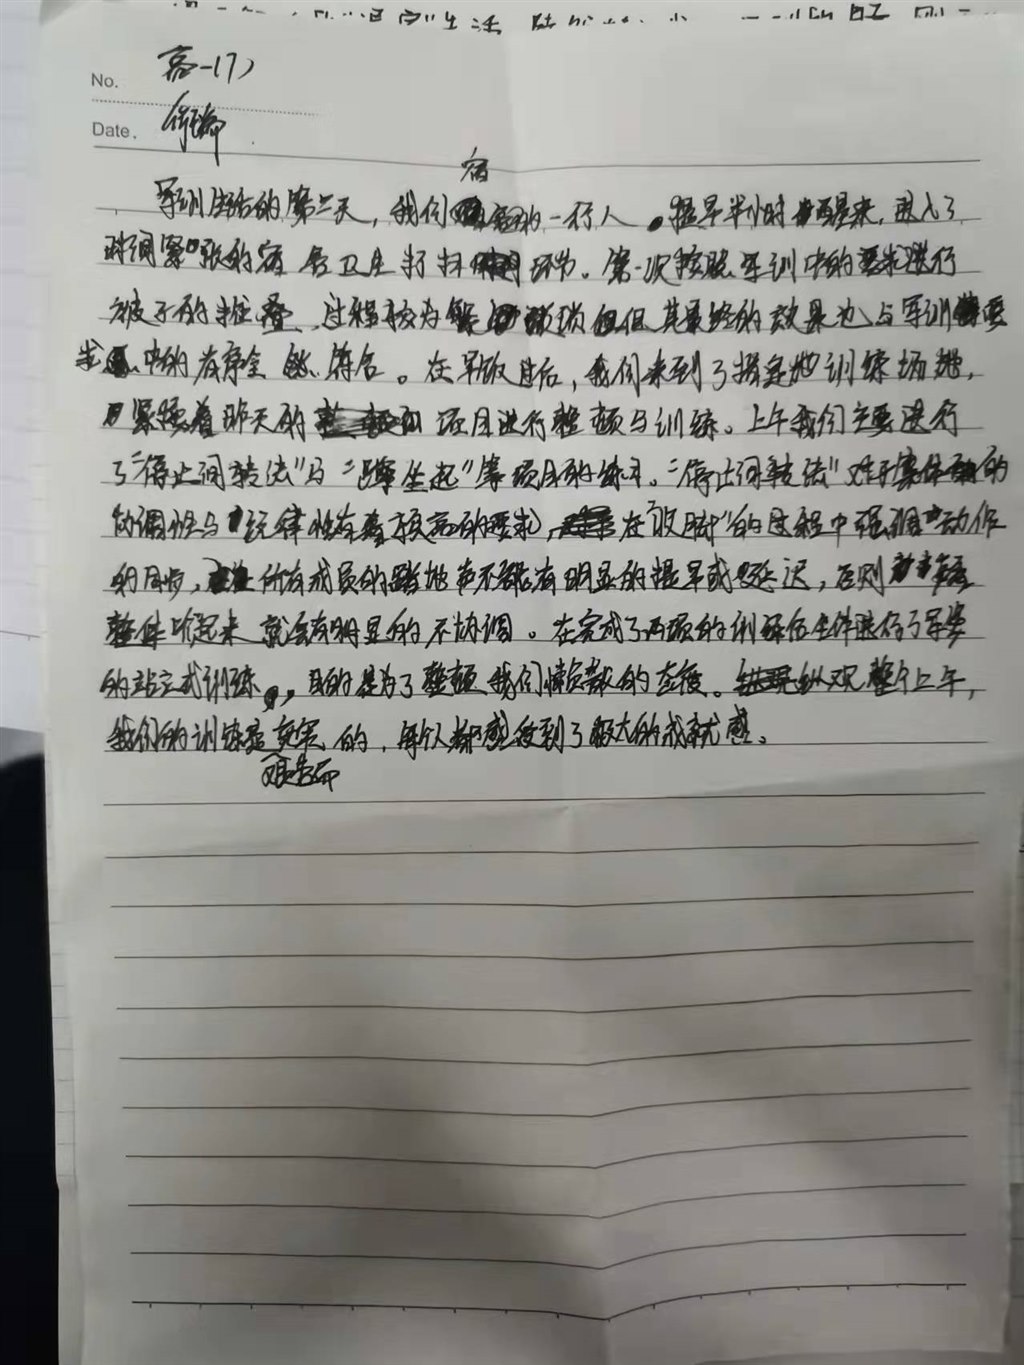 No. 高一(7)
Date.
军训生活的第二天，我们宿舍的一行人，提早半小时醒来，进入了
时间紧张的宿舍卫生打扫环节。第一次按照军训中的要求进行
被子的堆叠，过程较为繁琐但其最终的效果也与军训要
求中的有序全符合。在早饭过后，我们来到了指定地训练场地，
紧接着昨天的项目进行整顿与训练。上午我们主要进行
了“停止间转法”与“蹲坐起”等项目的练习。“停止间转法”对于集体的
协调性与纪律性有颇高的要求，在“收脚”的过程中强调动作
的同步，所有成员的踏地声不能有明显的提早或延迟，否则
整体听起来就会有明显的不协调。在完成了两项的训练后全体进行了军姿
的站立式训练，目的是为了整顿我们懒散的态度。纵观整个上午，
我们的训练是艰苦而充实的，每个人都感受到了极大的成就感。